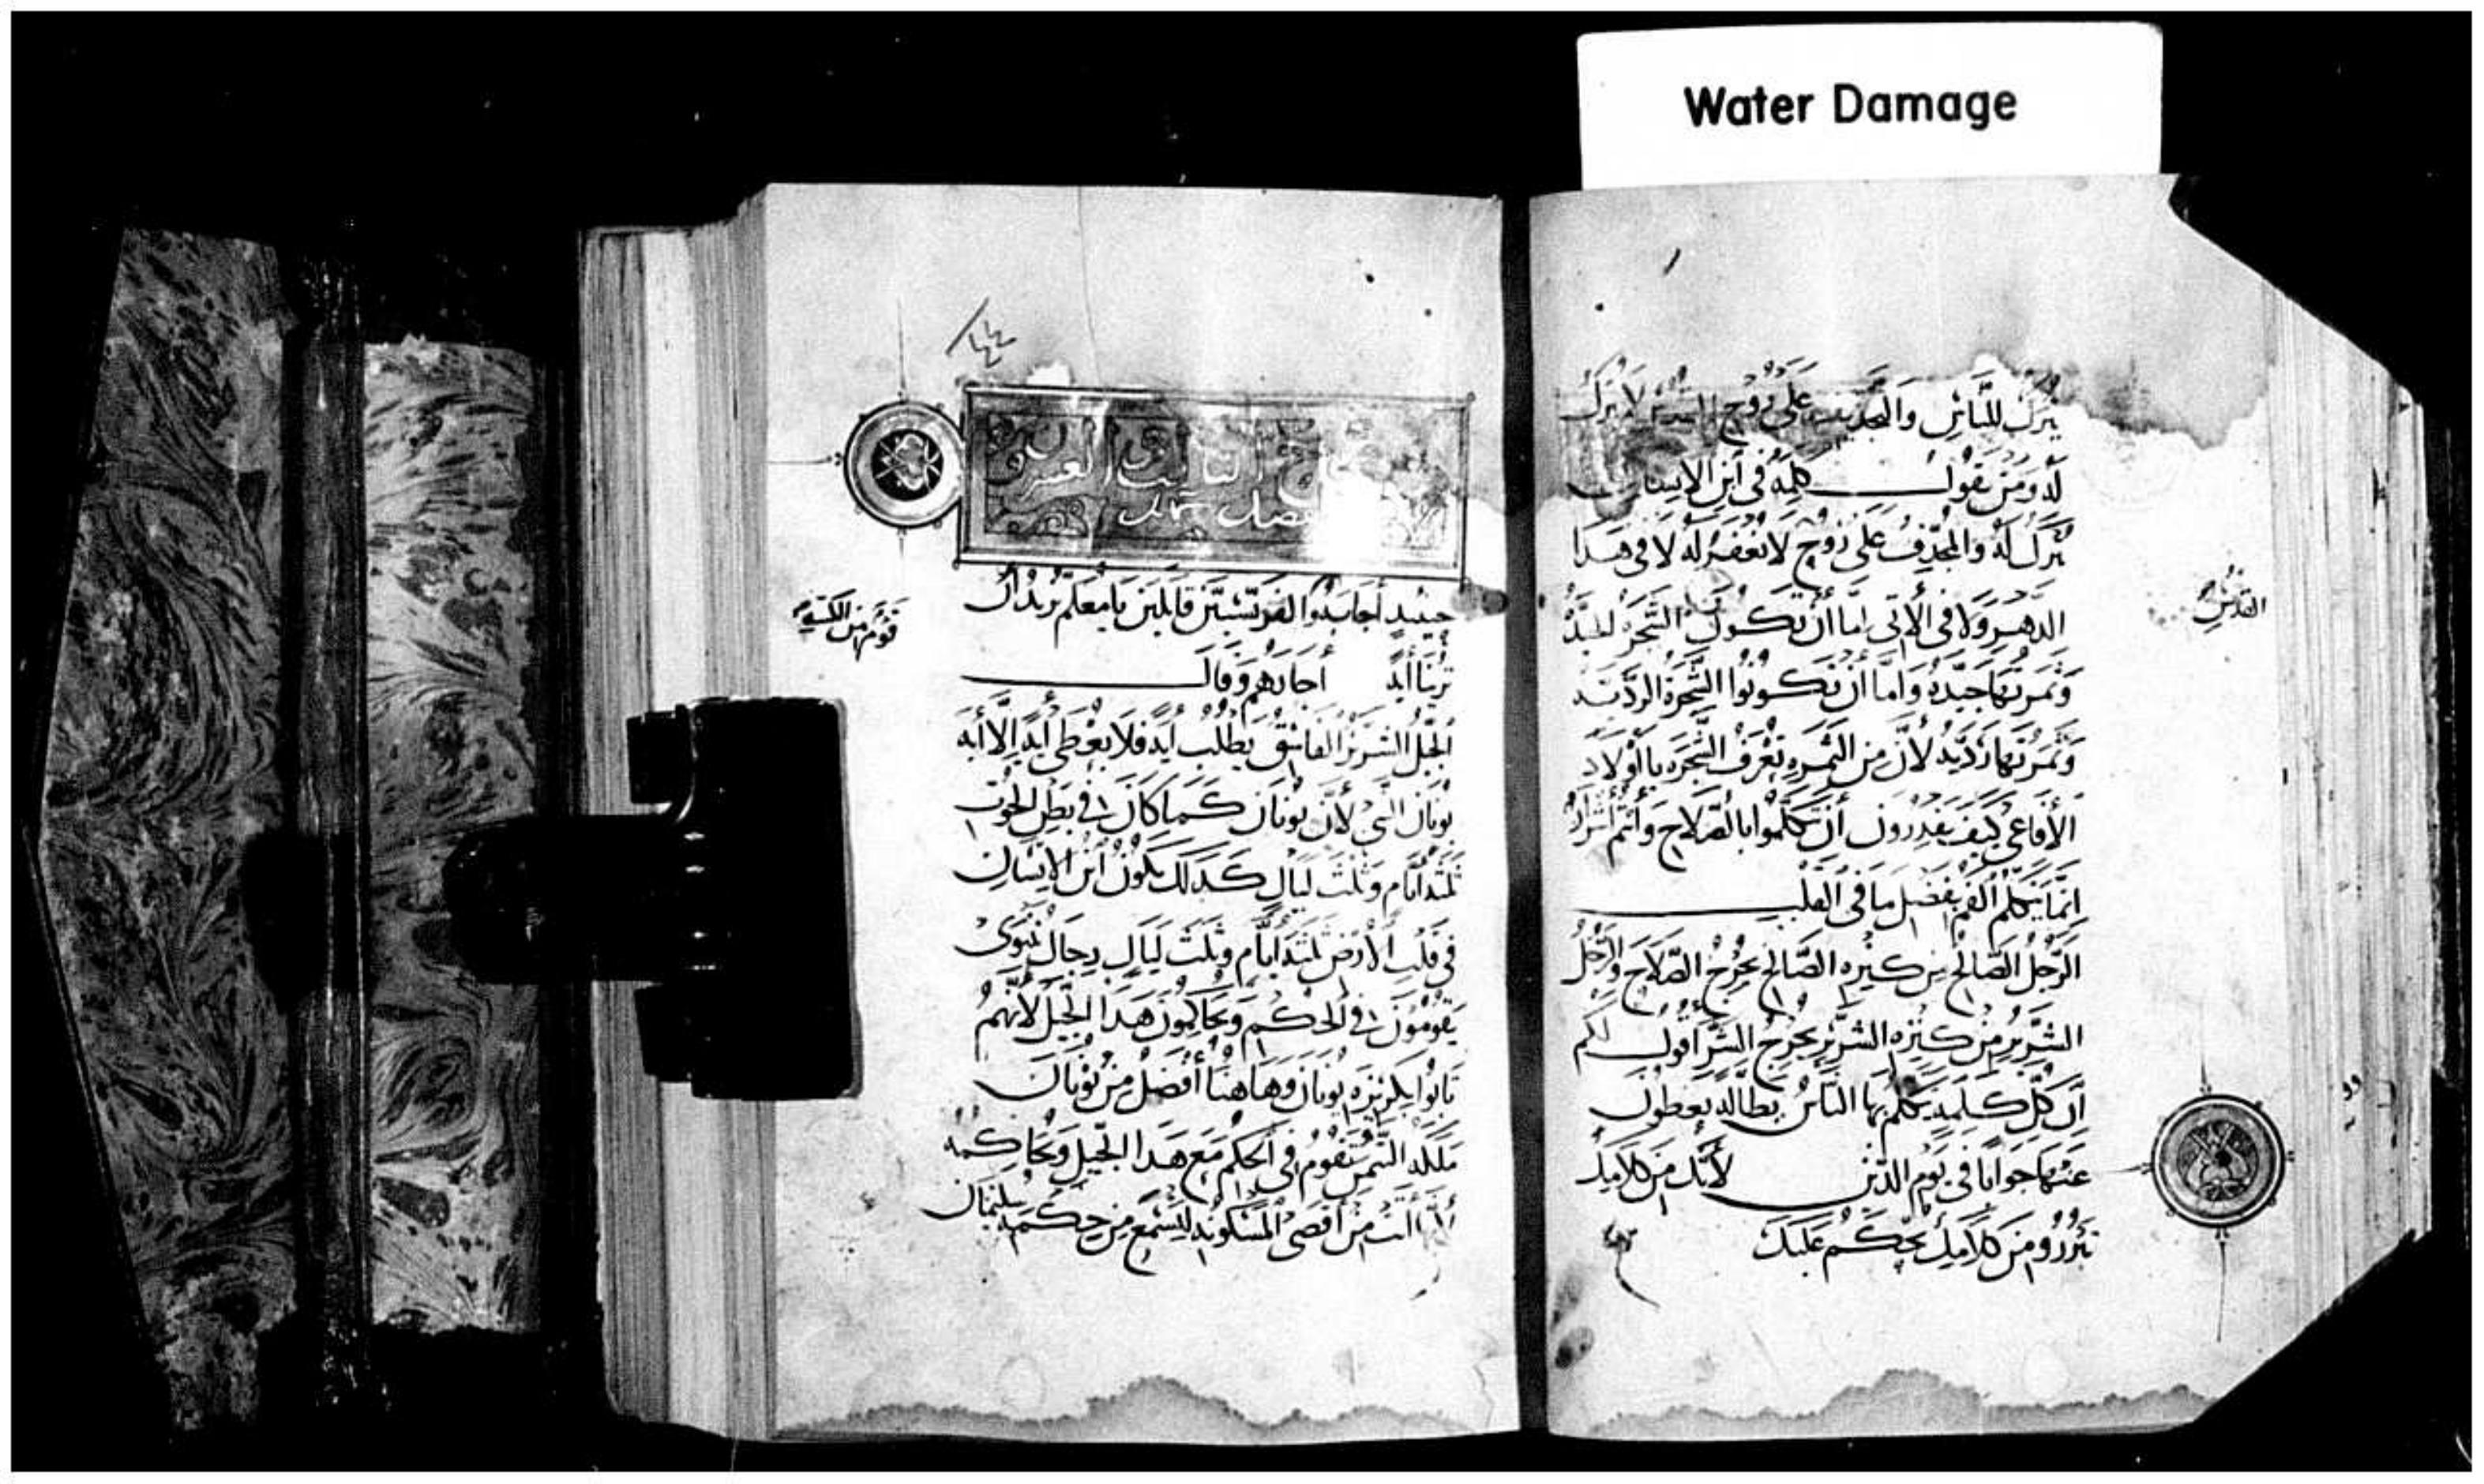 Water Damage
يترك للناس والتجديف على روح القدس لا يترك
له ومن يقول كلمة في ابن الانسان
يترك له والمجدف على روح لا تغفر له لا في هدا
القدس
الدهر ولا في الاتي اما ان تكون الشجرة جيدة
وثمرتها جيدة واما ان تكونوا الشجرة الردية
وثمرتها ردية لأن من الثمرة تعرف الشجرة يا أولاد
الأفاعي كيف يقدرون أن تتكلموا بالصلاح وأنتم أشرار
انما يتكلم الفم بفضل ما في القلب
الرجل الصالح من كنزه الصالح يخرج الصلاح والرجل
الشرير من كنزه الشرير يخرج الشر أقول لكم
أن كل كلمة يتكلم بها الناس بطالة يعطون
عنها جوابا في يوم الدين لأنك من كلامك
تبرر ومن كلامك يحكم عليك
الثالث والعشرون
فصل
حينيد أجابوا الفريسيين قايلين يا معلم نريد أن
قوم من الكتبة
ترينا أية أجابهم وقال
الجيل الشرير الفاسق يطلب أية فلا يعطى أية الا أية
يونان النبي لأن يونان كما كان في بطن الحوت
ثلثة أيام وثلث ليال كدلك يكون ابن الانسان
في قلب الأرض ثلثة أيام وثلث ليال رجال نينوى
يقومون في الحكم ويحاكمون هدا الجيل لأنهم
تابوا بكريزة يونان وهاهنا أفضل من يونان
ملكة التيمن ستقوم في الحكم مع هدا الجيل وتحاكمه
أتت من أقصى المسكونة لتسمع من حكمة سليمان